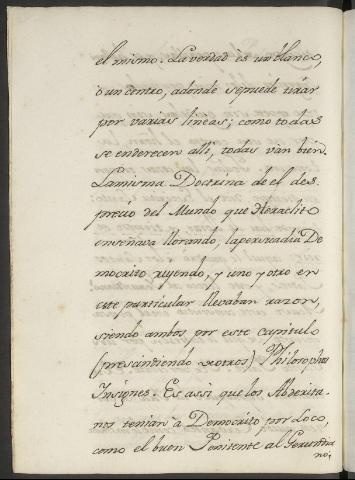 el mismo. La verdad ès un blanco,
ò un centro, adonde se puede tirar
por varias lineas; como todas
se enderecen allì, todas van bien.
La misma Doctrina de el des-
precio del Mundo que Heraclito
enseñava llorando, la persuadia De
mocrito riyendo, y uno y otro en
este particular llevaban razon,
siendo ambos por este capitulo
(prescindiendo de otros) Philosophos
Insignes. Es assi que los Abderita-
nos tenian à Democrito por Loco,
como el buen Penitente al Gerundia
no;